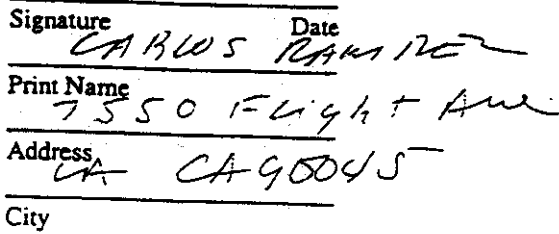 Signature Date
CARLOS RAMIREZ
Print Name
7550 Flight Ave
Address
LA CA 90045
City